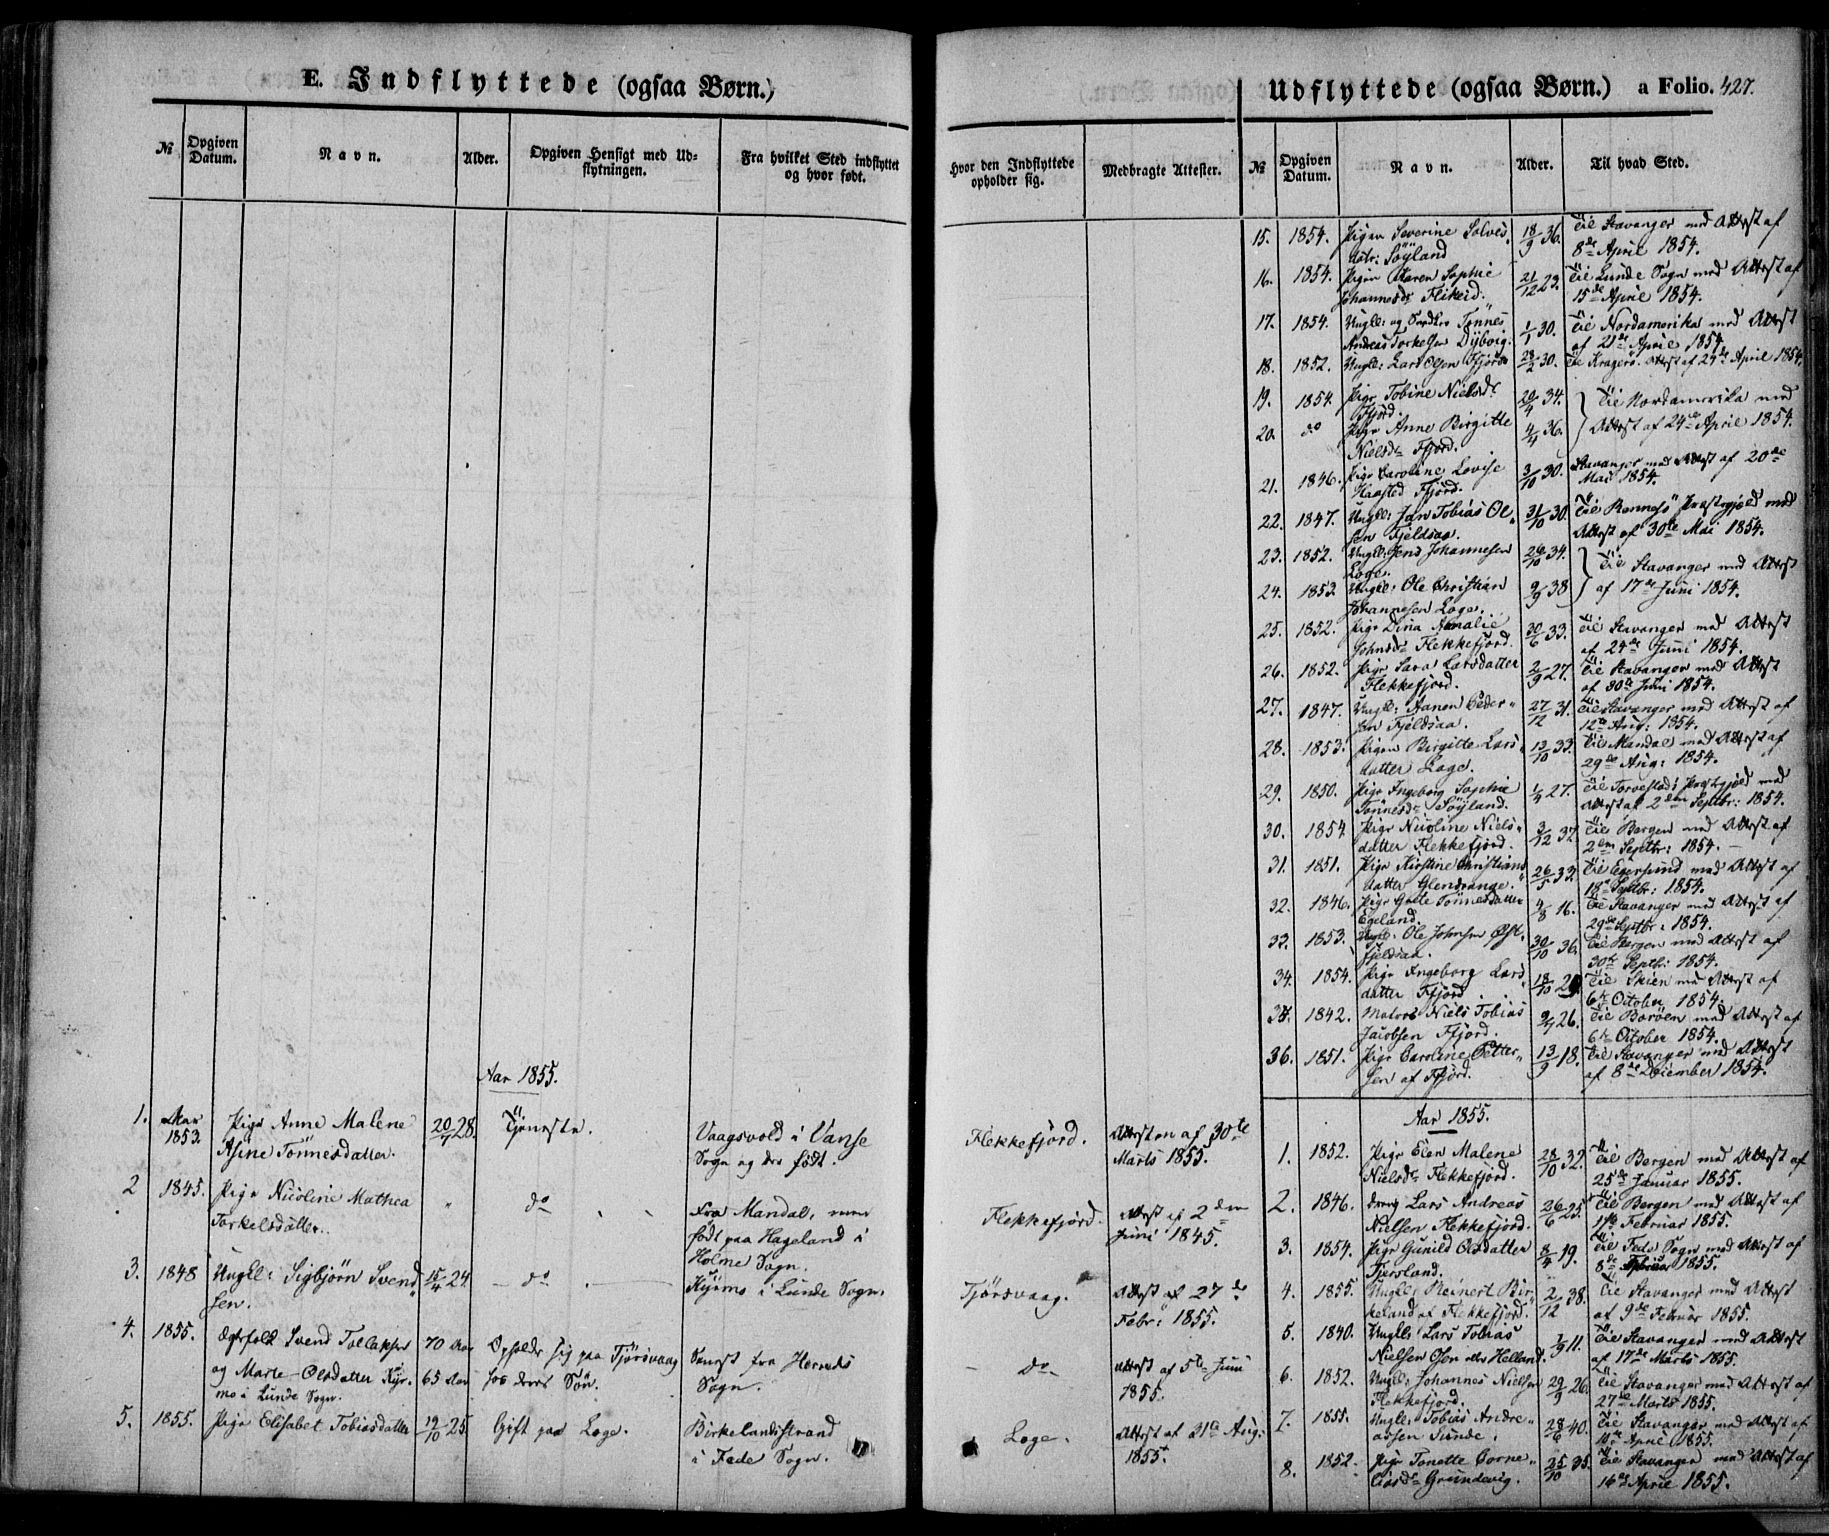 E. Indflyttede (ogsaa Børn.)
№ Opgiven Datum. Navn. Alder. Opgiven Hensigt med Udflytningen. Fra hvilket Sted indflyttet og hvor født.
Aar 1855.
1. 1853. Pige Anne Malene 20/4 28. Tjeneste. Vaagsvold i Vanse
Asine Tönnesdatter. Sogn og der født.
2 1845. Pige Nicoline Mathea " do Fra Mandal, men
Torkelsdatter. født paa Hageland i
Holme Sogn.
3. 1848 Ungk: Sigbjørn Svend 15/4 24. do Kjirmo i Lunde Sogn.
sen.
4. 1855. Ægtefolk Svend Tollaksen 70 Aar Opholde sig paa Tjørsvaag Senest fra Herreds
og Marte Olsdatter Kjir- 65 Aar hos deres Søn. Sogn.
mo i Lunde Sogn.
5. 1855. Pige Elisabet Tobiasdatter 19/10 25. Gift paa Loge. Birkelandsstrand
i Fede Sogn.
Hvor den Indflyttede opholder sig. Medbragte Attester.
Flekkefjord. Attesten af 30te
Marts 1855.
Flekkefjord. Attest af 2den
Juni 1845.
Tjørsvaag. Attest af 27de
Febr: 1855.
do Attest af 5te Juni
1855.
Loge. Attest af 31te Aug:
1855.
Udflyttede (ogsaa Børn.) a Folio. 427.
№ Opgiven Datum. Navn. Alder. Til hvad Sted.
15. 1854. Pigen Severine Solves 18/9 36. Til Stavanger med Attest af
datr: Söyland 8de April 1854.
16. 1854. Pige Karen Sophie 21/12 23. Til Lunde Sogn med Attest af
Johannesdr Flikeid. 15de April 1854.
17. 1854. Ungk: og Snedker Tønnes 1/1 30. Til Nordamerika med Attest
Andreas Torkelsen Dyborg. af 21de April 1854.
18. 1852. Ungk: Lars Olsen Ffjord 28/2 30. Til Kragerø. Attest af 24de April 1854.
19. 1854. Pige Tobine Nielsdr 20/4 34. Til Nordamerika med
Ffjord.
20. do Pige Anne Birgitte 4/4 36. Attest af 24de April 1854.
Nielsdr Ffjord.
21. 1846. Pige Caroline Lovise 3/10 30. Stavanger med Attest af 20de
Haasted Ffjord. Mai 1854.
22. 1847. Ungk: Jan Tobias Ol 31/10 30. Til Rennesö Præstegjeld med
sen Fjeldsaa. Attest af 30te Mai 1854.
23. 1852. Ungk: Jens Johannesen 26/10 34. Til Stavanger med Attest
Loge.
24. 1853 Ungk: Ole Christian 9/9 38 af 17de Juni 1854.
Johannesen Loge.
25. 1852. Pige Dina Amalie 30/6 33. Til Stavanger med Attest
Johnsdr Flekkefjord. af 24de Juni 1854.
26. 1852. Pige Sara Larsdatter 2/9 27. Til Stavanger med Attest
Flekkefjord. af 30te Juni 1854.
27. 1847. Ungk: Aanen Peder 27/12 31. Til Stavanger med Attest af
sen Fjeldsaa. 12te Aug: 1854.
28. 1853. Pigen Birgitte Lars 13/10 33. Til Mandal med Attest af
datter Loge. 29de Aug: 1854.
29. 1850. Pige Ingeborg Sophie 1/4 27. Til Torvestads Præstegjeld med
Tönnesdr Söyland. Attest af 2den Septbr: 1854.
30. 1854 Pige Nicoline Niels 3/12 37. Til Bergen med Attest af
datter Flekkefjord. 2den Septbr: 1854.
31. 1851. Pige Kirstine Christians 26/5 33. Til Egersund med Attest af
datter Glendrange. 18de Septbr: 1854.
32. 1846. Pige Grete Tönnesdatter 4/8 16. Til Stavanger med Attest af
Egeland. 29de Septbr: 1854.
33. 1853. Ungk: Ole Johnsen Øst 30/10 36. Til Bergen med Attest af
Fjeldsaa. 30te Septbr: 1854.
34. 1854. Pige Ingeborg Lars 18/10 29. Til Skien med Attest af
datter Ffjord 6te October 1854.
35. 1842. Matros Niels Tobias 9/4 26. Til Borøen med Attest af
Jacobsen Ffjord. 6te October 1854.
36. 1851. Pige Caroline Petter 13/9 18. Til Stavanger med Attest
sen af Ffjord. af 8de December 1854.
Aar 1855.
1. 1852. Pige Elen Malene 28/10 32. Til Bergen med Attest af
Nielsdr Flekkefjord. 25de Januar 1855.
2. 1846. Dreng Lars Andreas 26/6 25. Til Bergen med Attest af
Nielsen Flekkefjord. 1te Februar 1855.
3. 1854. Pige Gunild Olsdatter 8/4 19. Til Fede Sogn med Attest af
Fjersland. 8de Februar 1855.
4. 1855. Ungk: Reinert Bir 2/12 38. Til Stavanger med Attest
keland af Flekkefjord. af 9de Februar 1855.
5. 1840. Ungk: Lars Tobias 1/9 11. Til Stavanger med Attest
Nielsen Osen eller Helland. af 17de Marts 1855.
6. 1852. Ungk: Johannes Nielsen 29/9 26. Til Stavanger med Attest af
Flekkefjord. 27de Marts 1855.
7. 1855. Ungk: Tobias Andre 28/6 40. Til Stavanger med Attest af
assen Sunde. April 1855.
8. 1852. Pige Tonette Corne 25/10 35. Til Stavanger med Attest af
liusdr Grundevig. 16de April 1855.